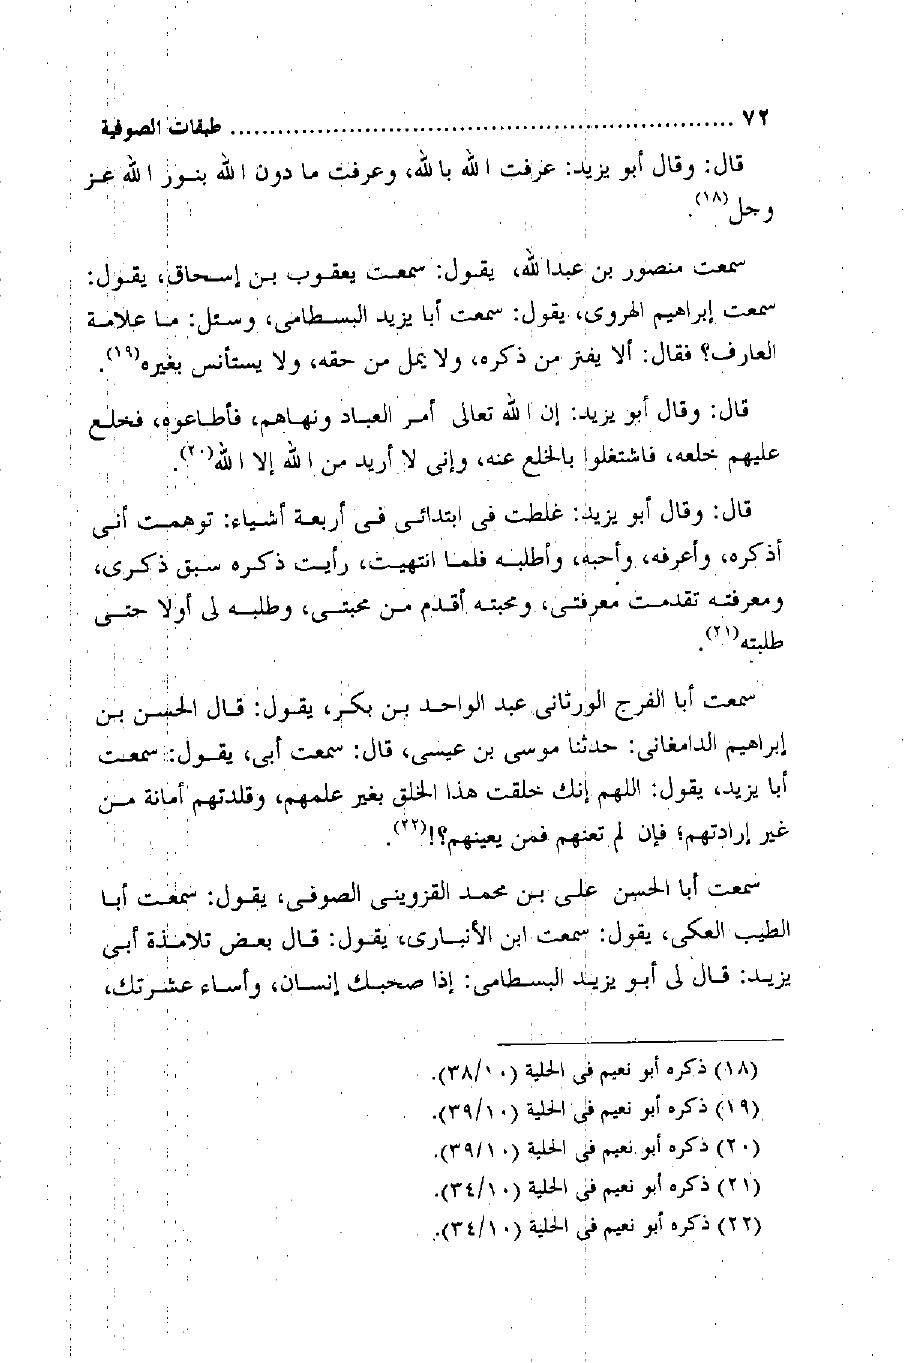 ٧٢ ................................................................ طبقات الصوفية
قال: وقال أبو يزيد: عرفت الله بالله، وعرفت ما دون الله بنور الله عز
وجل(١٨).
سمعت منصور بن عبدالله، يقول: سمعت يعقوب بن إسحاق، يقول:
سمعت إبراهيم الهروى، يقول: سمعت أبا يزيد البسطامى، وسئل: ما علامة
العارف؟ فقال: ألا يفتر من ذكره، ولا يمل من حقه، ولا يستأنس بغيره(١٩).
قال: وقال أبو يزيد: إن الله تعالى أمر العباد ونهاهم، فأطاعوه، فخلع
عليهم خلعه، فاشتغلوا بالخلع عنه، وإنى لا أريد من الله إلا الله(٢٠).
قال: وقال أبو يزيد: غلطت فى ابتدائى فى أربعة أشياء: توهمت أنى
أذكره، وأعرفه، وأحبه، وأطلبه فلما انتهيت، رأيت ذكره سبق ذكرى،
ومعرفته تقدمت معرفتى، ومحبته أقدم من محبتى، وطلبه لى أولا حتى
طلبته(٢١).
سمعت أبا الفرج الورثانى عبد الواحد بن بكر، يقول: قال الحسن بن
إبراهيم الدامغانى: حدثنا موسى بن عيسى، قال: سمعت أبى، يقول: سمعت
أبا يزيد، يقول: اللهم إنك خلقت هذا الخلق بغير علمهم، وقلدتهم أمانة من
غير إرادتهم؛ فإن لم تعنهم فمن يعينهم؟!(٢٢).
سمعت أبا الحسن على بن محمد القزوينى الصوفى، يقول: سمعت أبا
الطيب العكى، يقول: سمعت ابن الأنبارى، يقول: قال بعض تلامذة أبى
يزيد: قال لى أبو يزيد البسطامى: إذا صحبك إنسان، وأساء عشرتك،
(١٨) ذكره أبو نعيم فى الحلية (٣٨/١٠).
(١٩) ذكره أبو نعيم فى الحلية (٣٩/١٠).
(٢٠) ذكره أبو نعيم فى الحلية (٣٩/١٠).
(٢١) ذكره أبو نعيم فى الحلية (٣٤/١٠).
(٢٢) ذكره أبو نعيم فى الحلية (٣٤/١٠).